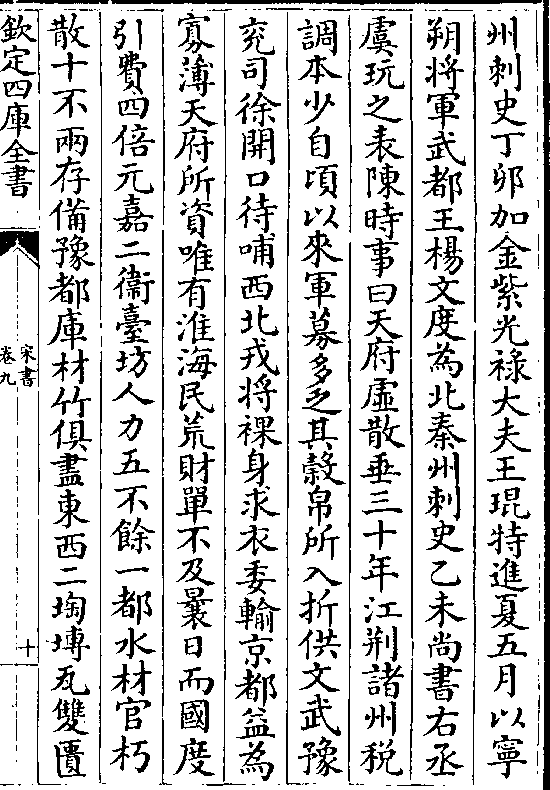 州刺史丁卯加金紫光禄大夫王琨特進夏五月以寧
朔將軍武都王楊文度為北秦州刺史乙未尚書右丞
虞玩之表陳時事曰天府虛散垂三十年江荆諸州税
調本少自頃以來軍募多乏其穀帛所入折供文武豫
兖司徐開口待哺西北戎將裸身求衣委輸京都益為
寡薄天府所資唯有淮海民荒財單不及曩日而國度
引費四倍元嘉二衞臺坊人力五不餘一都水材官朽
散十不兩存備豫都庫材竹俱盡東西二堈塼瓦雙匱
欽定四庫全書
宋書
卷九
十